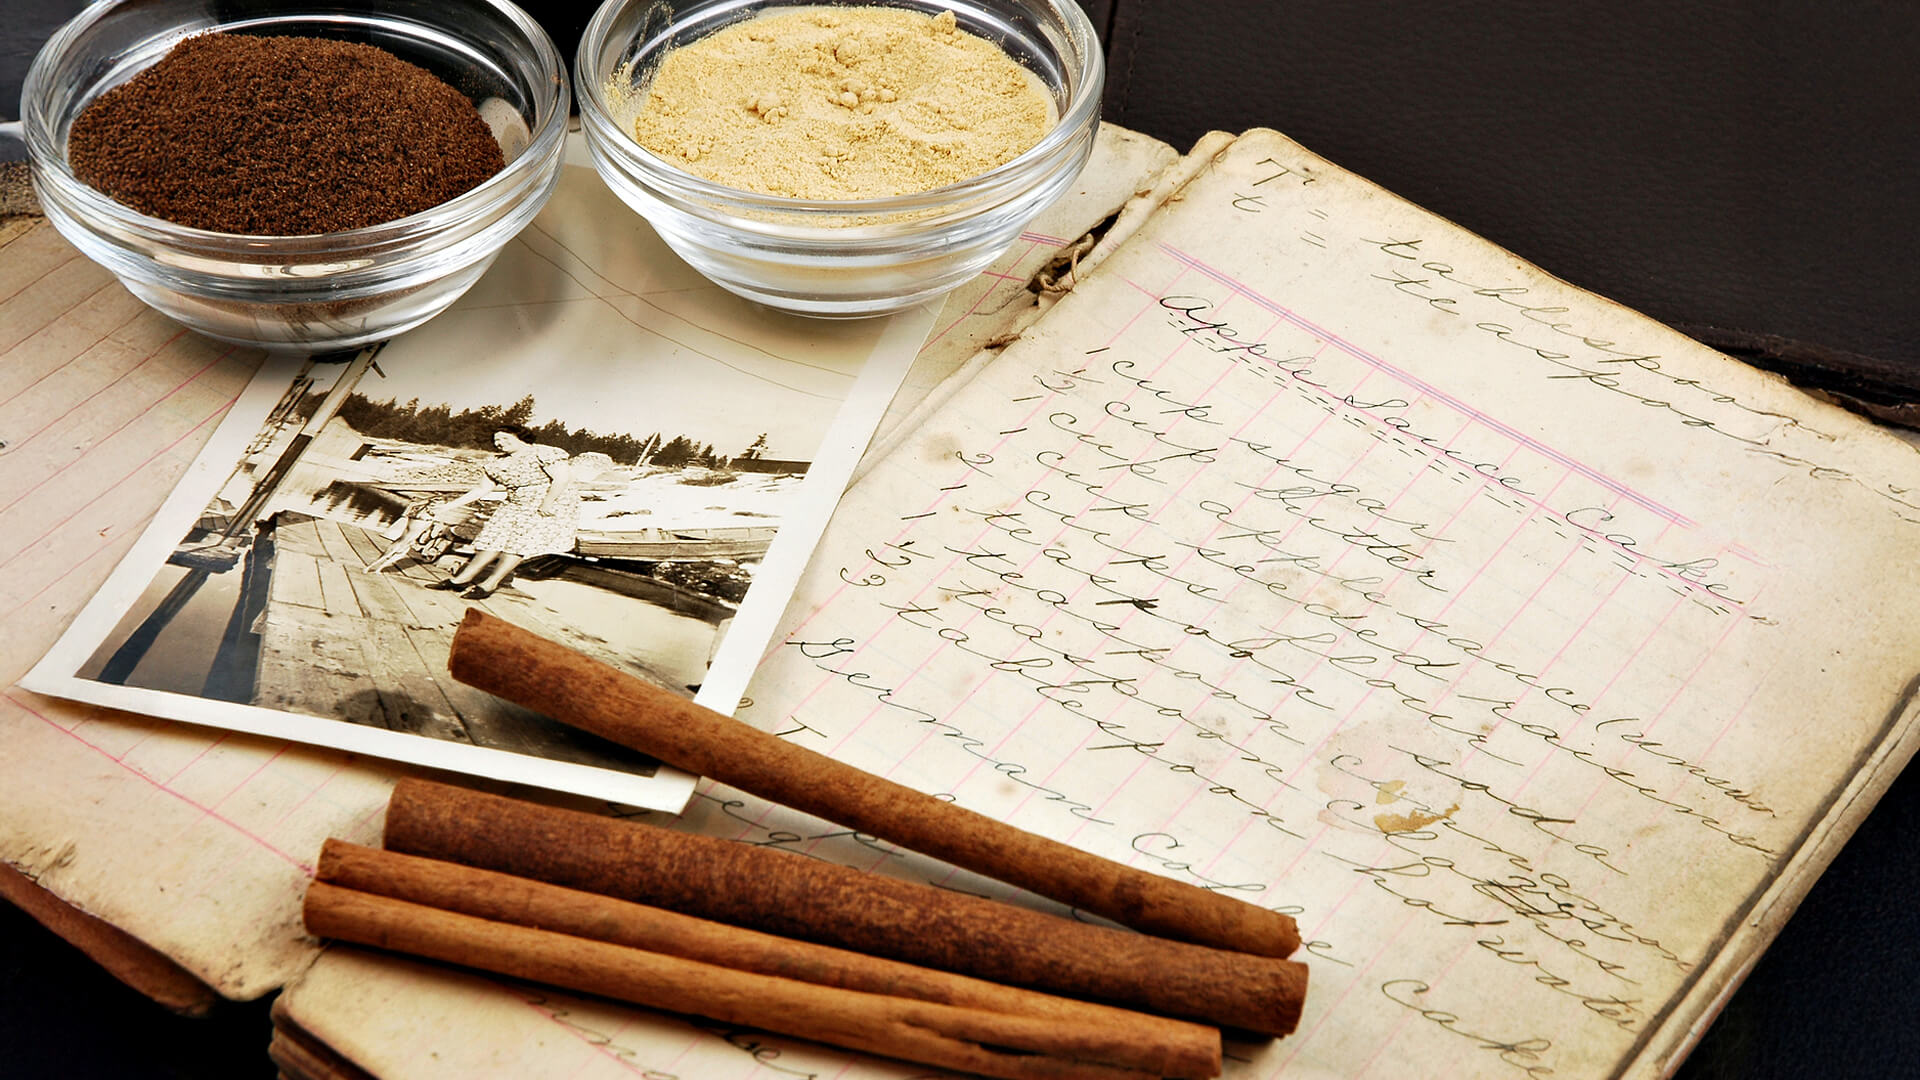 T = tablespoon
t = teaspoon
Apple Sauce Cake
1 cup sugar
½ cup butter
1 cup apple sauce (unsw
1 cup seeded raisins
2 cups flour
1 teaspoon soda
1 teaspoon cinnamon
½ teaspoon cloves
3 tablespoon hot water
German Coffee Cake